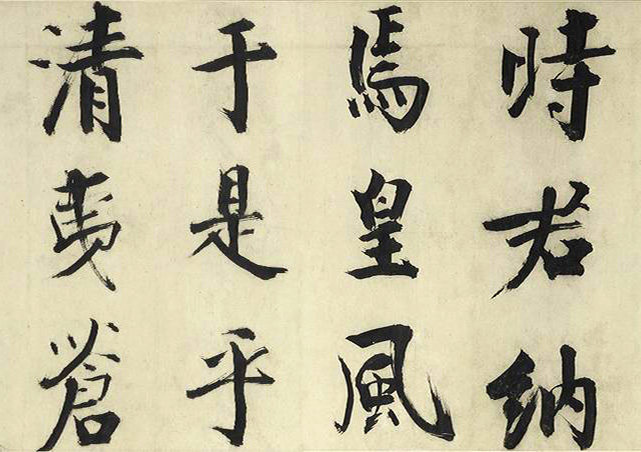 時若納
焉皇風
于是乎
清夷蒼